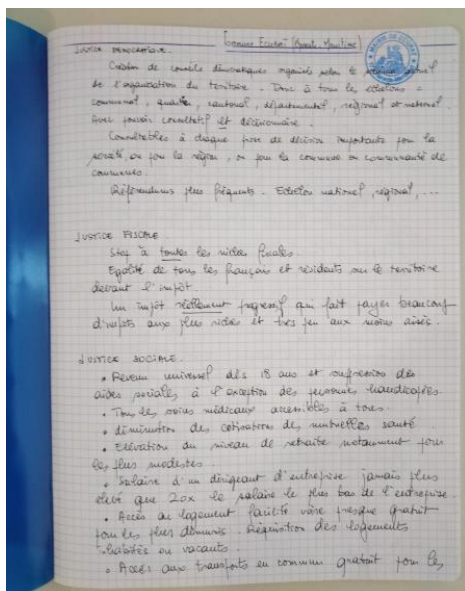 Commune Écurat (Charente Maritime)
MAIRIE DE ECURAT
JUSTICE DEMOCRATIQUE.
Création de conseils démocratiques organisés selon le actuel
de l'organisation du territoire. Donc à tous les échelons =
communal, quartier, cantonal, départemental, régional et national.
Avec pouvoir consultatif et décisionnaire.
Consultables à chaque prise de décision importante pour la
société, ou pour la région, ou pour la commune ou communauté de
communes.
Référendums plus fréquents. Echelon national, régional, ...
JUSTICE FISCALE
Stop à toutes les niches fiscales.
Egalité de tous les français et résidents sur le territoire
devant l'impôt.
Un impôt réellement progressif qui fait payer beaucoup
d'impôts aux plus riches et très peu aux moins aisés.
JUSTICE SOCIALE.
• Revenu universel dès 18 ans et suppression des
aides sociales à l'exception des personnes handicapées.
• Tous les soins médicaux accessibles à tous.
• diminution des cotisations des mutuelles santé
• Elévation du niveau de retraite notamment pour
les plus modestes.
• Salaire d'un dirigeant d'entreprise jamais plus
élevé que 20x le salaire le plus bas de l'entreprise.
• Accès au logement facilité voire presque gratuit
pour les plus démunis. Réquisition des logements
inhabités ou vacants.
• Accès aux transports en commun gratuit pour les